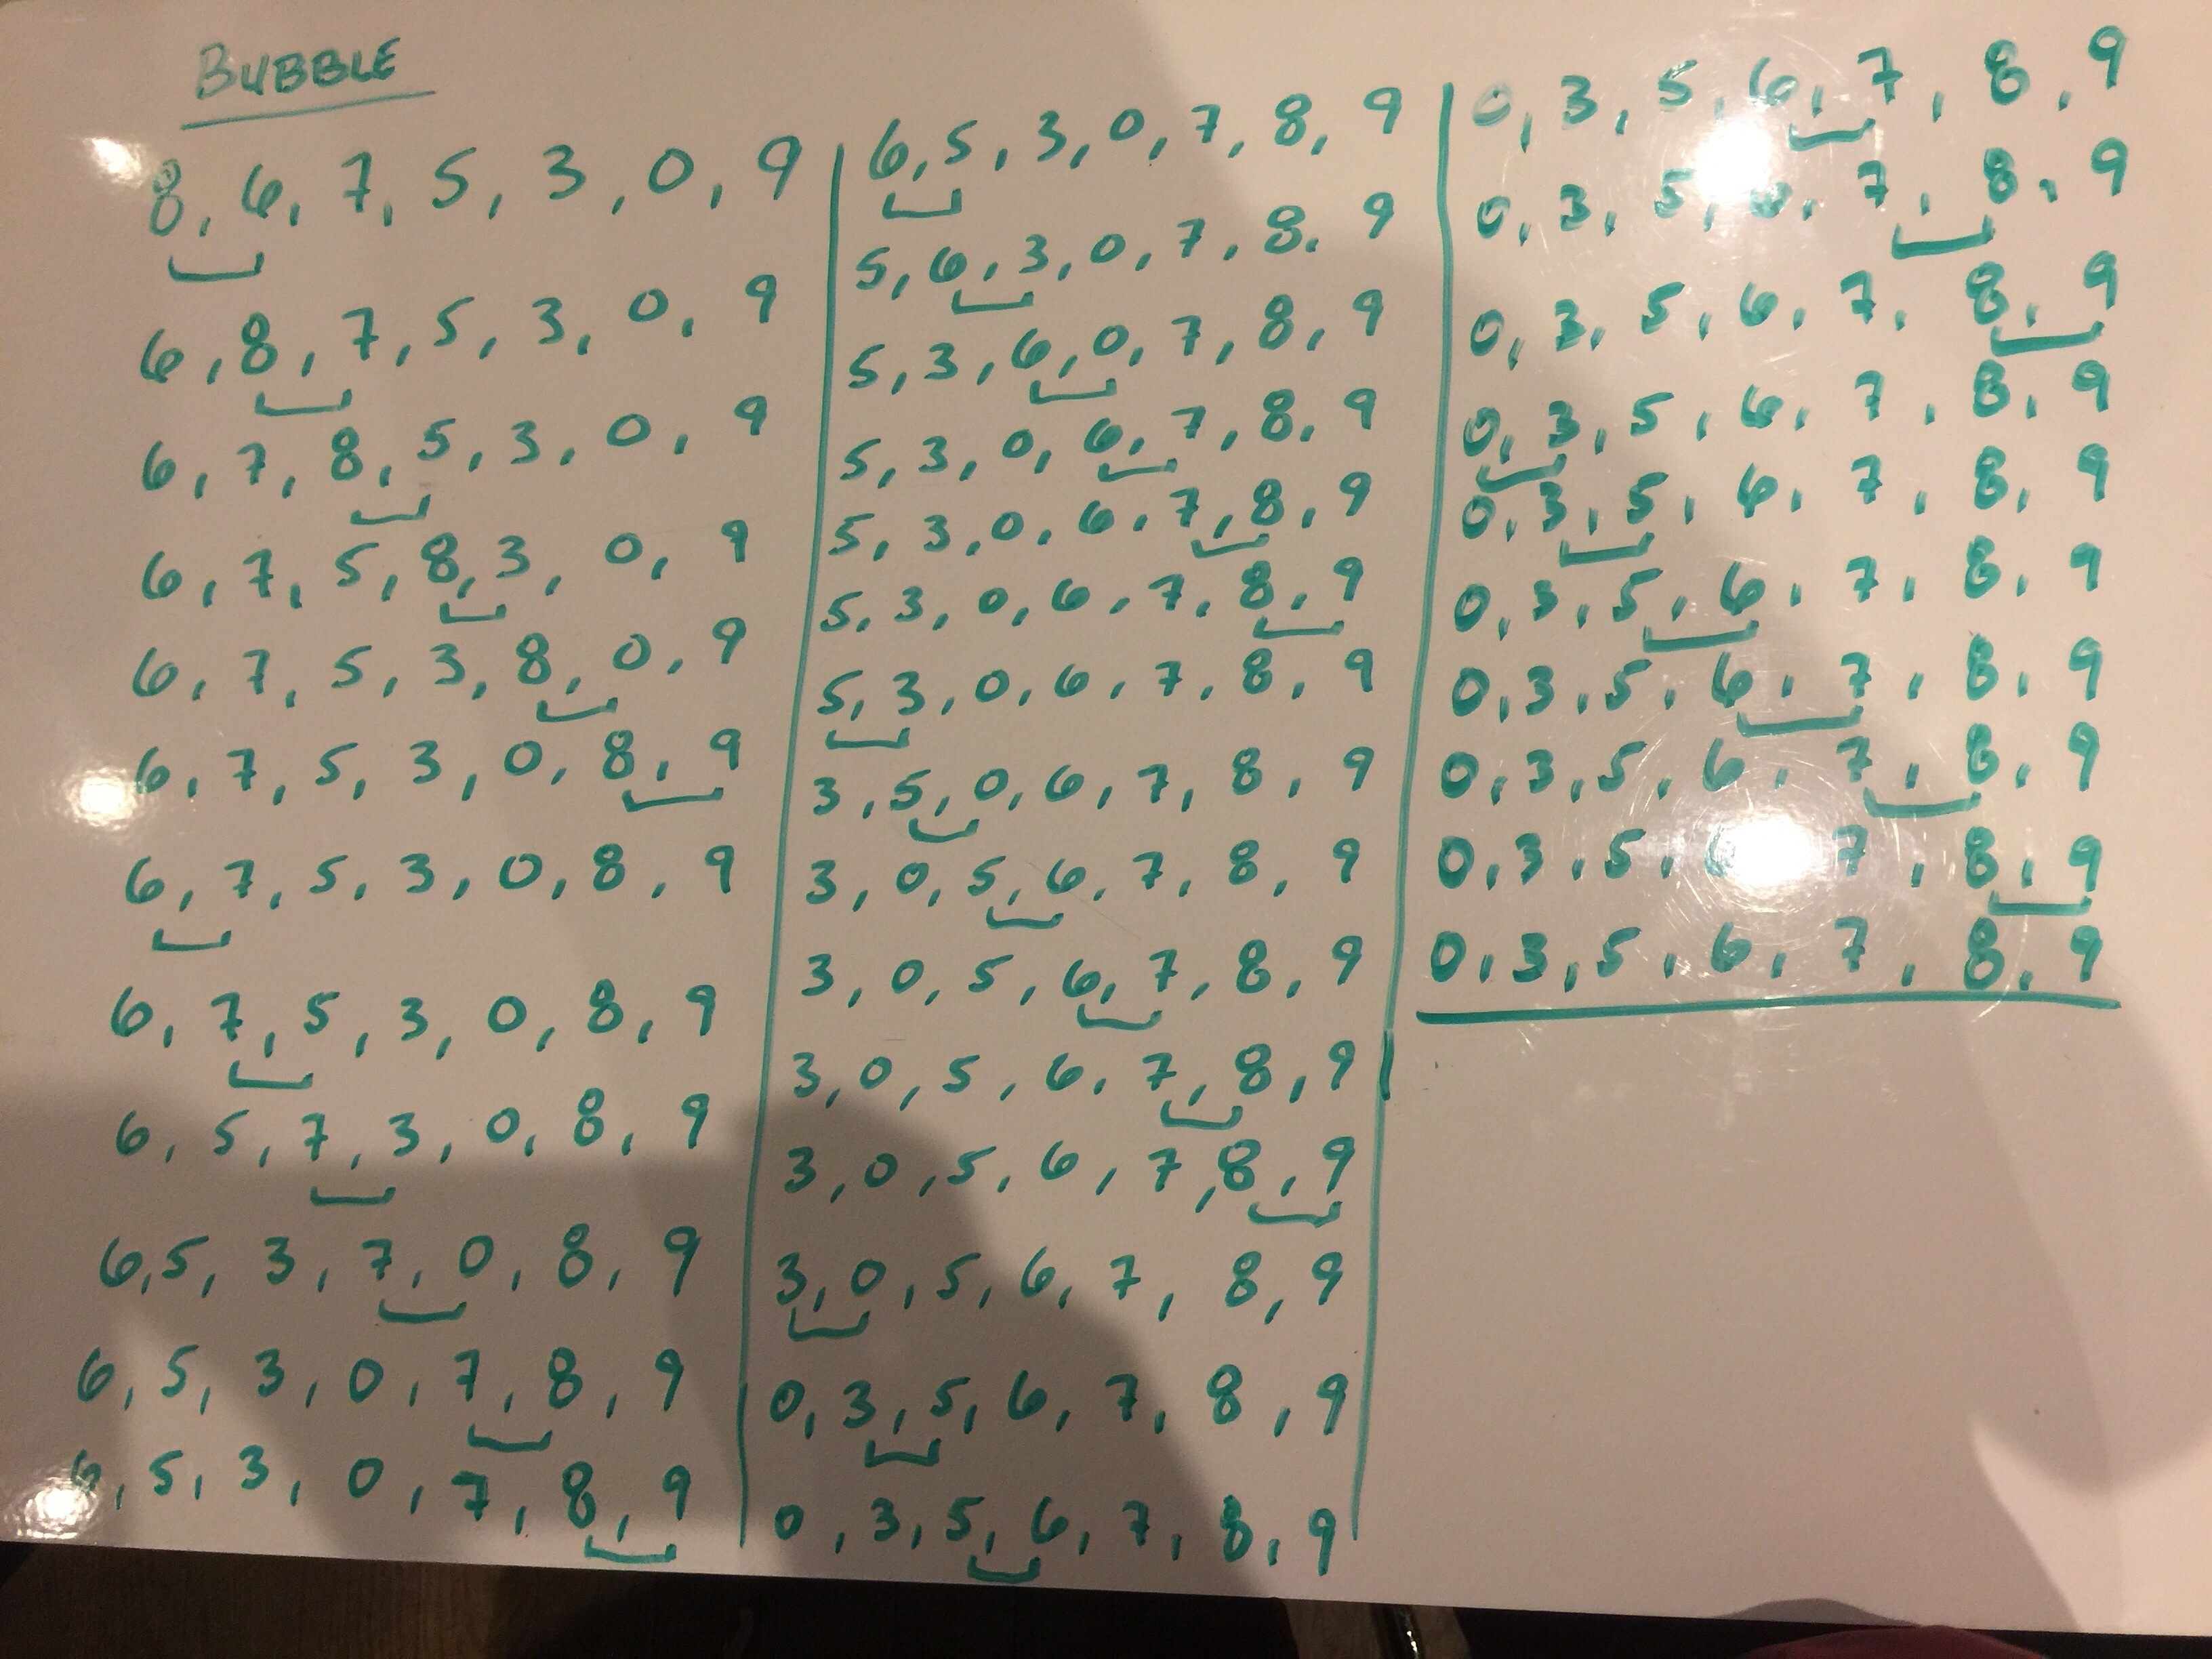 BUBBLE
8, 6, 7, 5, 3, 0, 9
6, 8, 7, 5, 3, 0, 9
6, 7, 8, 5, 3, 0, 9
6, 7, 5, 8, 3, 0, 9
6, 7, 5, 3, 8, 0, 9
6, 7, 5, 3, 0, 8, 9
6, 7, 5, 3, 0, 8, 9
6, 7, 5, 3, 0, 8, 9
6, 5, 7, 3, 0, 8, 9
6, 5, 3, 7, 0, 8, 9
6, 5, 3, 0, 7, 8, 9
6, 5, 3, 0, 7, 8, 9
6, 5, 3, 0, 7, 8, 9
5, 6, 3, 0, 7, 8, 9
5, 3, 6, 0, 7, 8, 9
5, 3, 0, 6, 7, 8, 9
5, 3, 0, 6, 7, 8, 9
5, 3, 0, 6, 7, 8, 9
5, 3, 0, 6, 7, 8, 9
3, 5, 0, 6, 7, 8, 9
3, 0, 5, 6, 7, 8, 9
3, 0, 5, 6, 7, 8, 9
3, 0, 5, 6, 7, 8, 9
3, 0, 5, 6, 7, 8, 9
3, 0, 5, 6, 7, 8, 9
0, 3, 5, 6, 7, 8, 9
0, 3, 5, 6, 7, 8, 9
0, 3, 5, 6, 7, 8, 9
0, 3, 5, 6, 7, 8, 9
0, 3, 5, 6, 7, 8, 9
0, 3, 5, 6, 7, 8, 9
0, 3, 5, 6, 7, 8, 9
0, 3, 5, 6, 7, 8, 9
0, 3, 5, 6, 7, 8, 9
0, 3, 5, 6, 7, 8, 9
0, 3, 5, 7, 8, 9
0, 3, 5, 6, 7, 8, 9